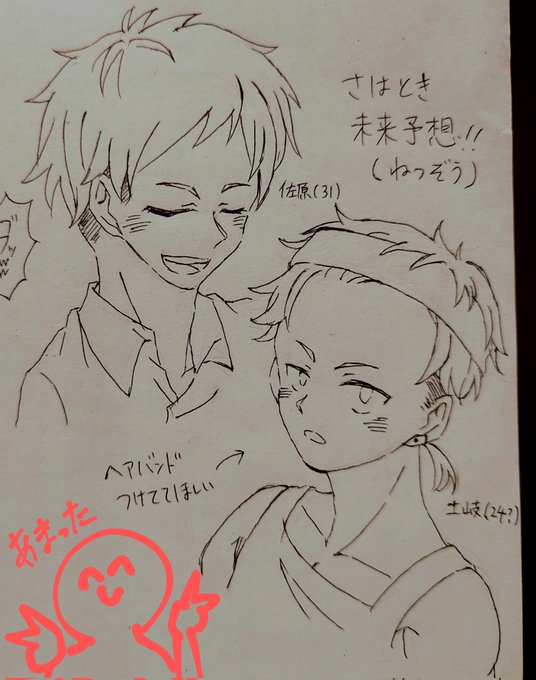 さはとき
未来予想!!
(ねつぞう)
佐原(31)
ヘアバンド
つけててほしい
土岐(24?)
あまった